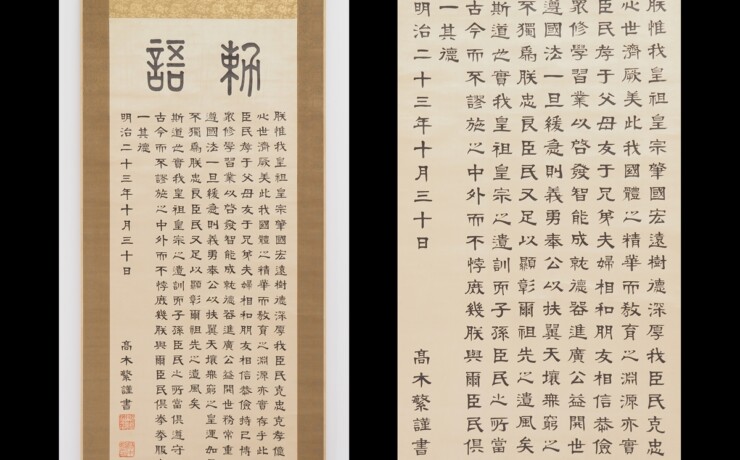 勅語
朕惟我皇祖皇宗肇國宏遠樹德深厚我臣民克忠克孝億
心世濟厥美此我國體之精華而敎育之淵源亦實存于此
臣民孝于父母友于兄弟夫婦相和朋友相信恭儉持己博
衆修學習業以啓發智能成就德器進廣公益開世務常重
遵國法一旦緩急則義勇奉公以扶翼天壤無窮之皇運如
不獨爲朕忠良臣民又足以顯彰爾祖先之遺風矣
斯道之實我皇祖皇宗之遺訓而子孫臣民之所當俱遵守
古今而不謬施之中外而不悖庶幾朕與爾臣民俱拳拳服
一其德
明治二十三年十月三十日
高木繁謹書
朕惟我皇祖皇宗肇國宏遠樹德深厚我臣民克忠
心世濟厥美此我國體之精華而敎育之淵源亦實
臣民孝于父母友于兄弟夫婦相和朋友相信恭儉
衆修學習業以啓發智能成就德器進廣公益開世
遵國法一旦緩急則義勇奉公以扶翼天壤無窮之
不獨爲朕忠良臣民又足以顯彰爾祖先之遺風矣
斯道之實我皇祖皇宗之遺訓而子孫臣民之所當
古今而不謬施之中外而不悖庶幾朕與爾臣民俱
一其德
明治二十三年十月三十日
高木繁謹書